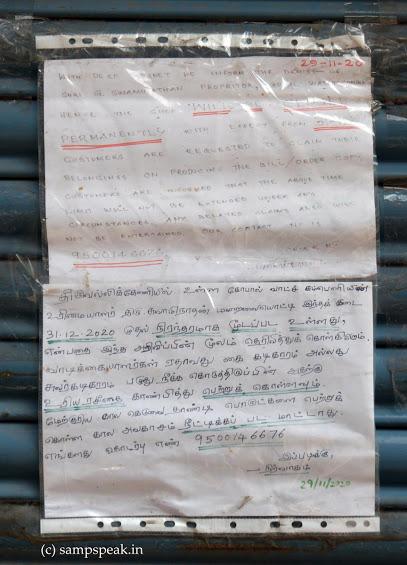 29-11-20
WITH DEEP REGRET WE INFORM THE DEMISE OF
SHRI G. SWAMINATHAN PROPRITOR,
HENCE THIS SHOP WILL
PERMANENTLY WITH EFFECT FROM
CUSTOMERS ARE REQUESTED TO CLAIM THEIR
BELONGINGS ON PRODUCING THE BILL/ORDER COPY
CUSTOMERS ARE INFORMED THAT THE ABOVE TIME
LIMIT WILL NOT BE EXTENDED UNDER ANY
CIRCUMSTANCES. ANY BELATED CLAIMS ALSO WILL
NOT BE ENTERTAINED. OUR CONTACT NO IS
9500146676
திருவல்லிக்கேணியில் உள்ள கோபால் வாட்ச் கம்பெனியின்
உரிமையாளர் திரு சுவாமிநாதன் மறைவையொட்டி இந்தக் கடை
31.12.2020 முதல் நிரந்தரமாக மூடப்பட உள்ளது,
என்பதை இந்த அறிவிப்பின் மூலம் தெரிவித்துக் கொள்கிறோம்.
வாடிக்கையாளர்கள் ஏதாவது கை கடிகாரம் அல்லது
சுவர்கடிகாரம் பழுது நீக்க கொடுத்திருப்பின் அதற்கு
உரிய ரசீதை காண்பித்து பெற்றுக் கொள்ளவும்.
மேற்கூறிய கால கெடுவை தாண்டி பொருட்களை பெற்றுக்
கொள்ள கால அவகாசம் நீட்டிக்கப் பட மாட்டாது.
எங்களது தொடர்பு எண் 9500146676
இப்படிக்கு,
நிர்வாகம்
29/11/2020
(c) sampspeak.in